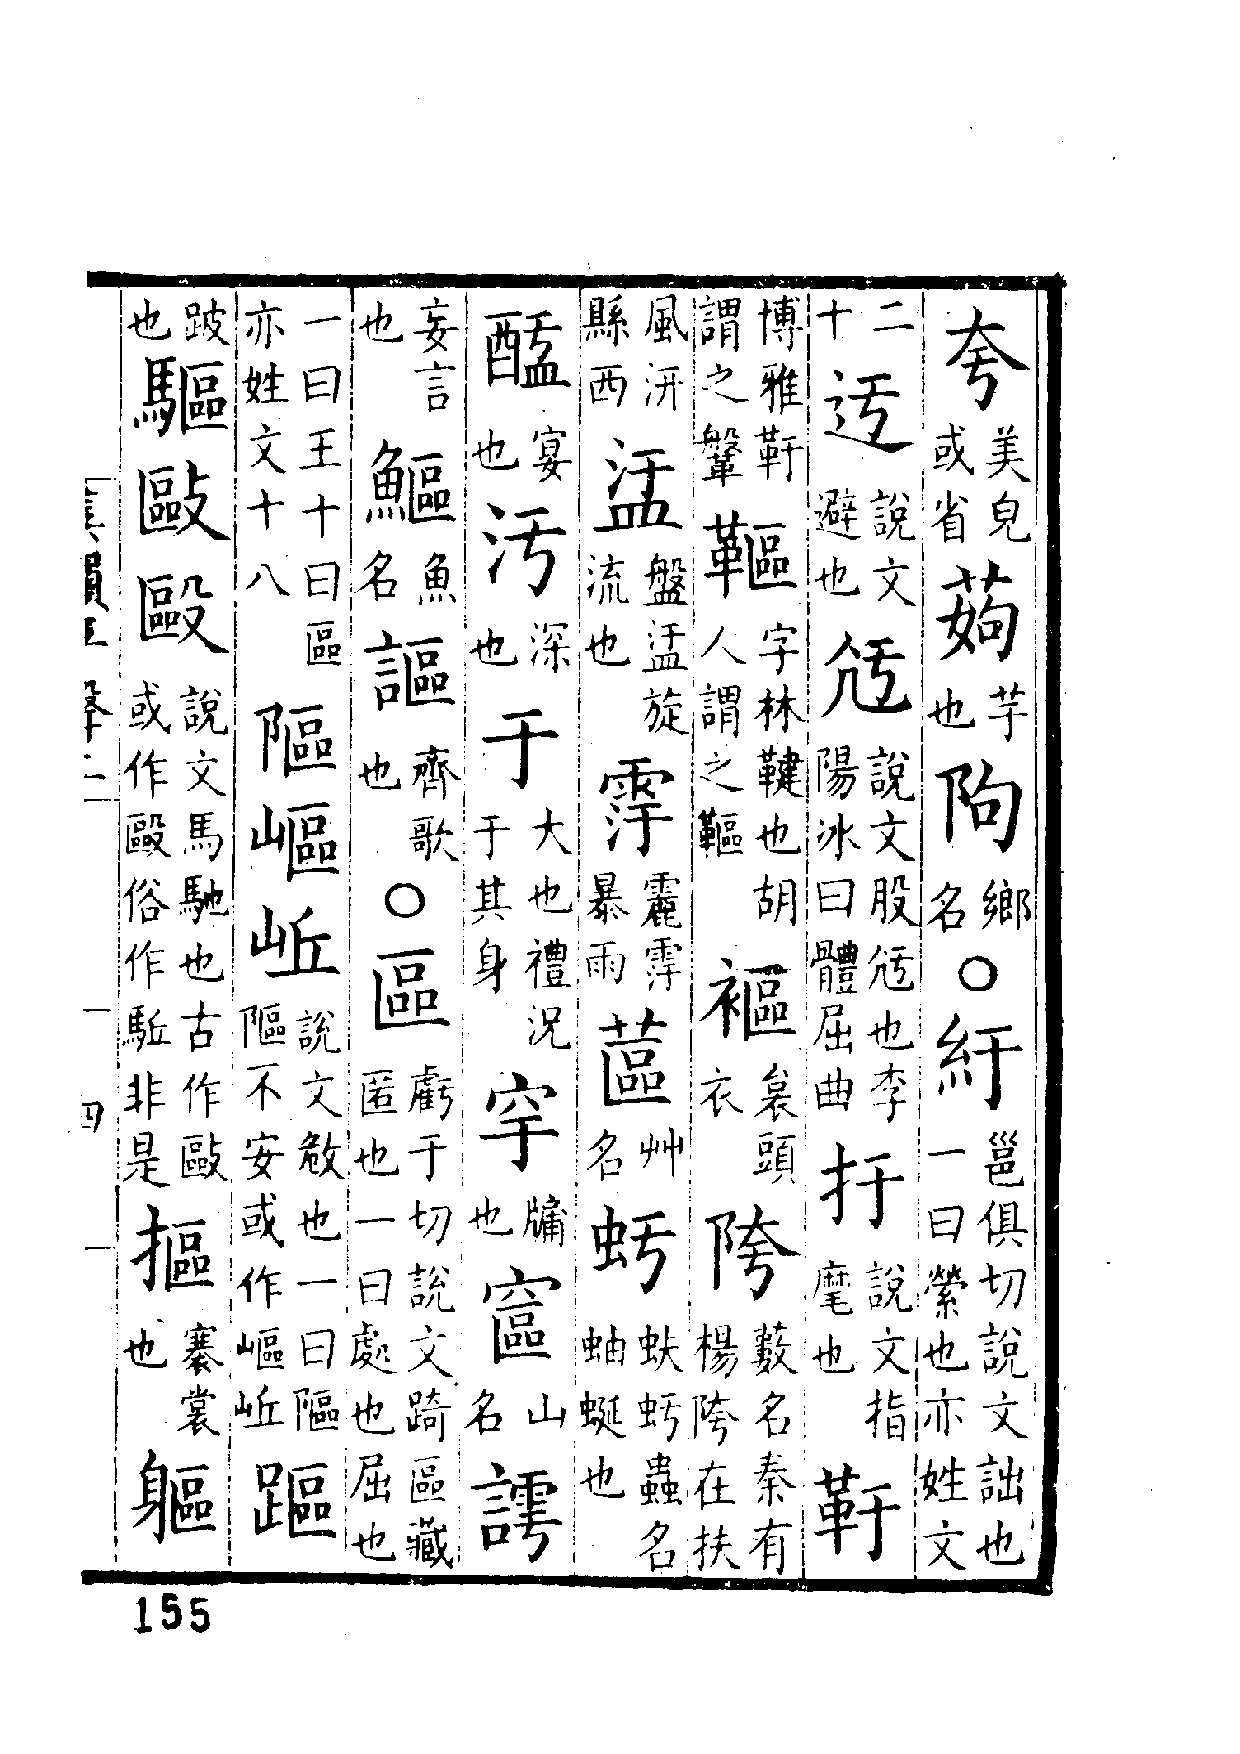 夸美皃或省芋也鄉名○紆邕俱切說文詘也一曰縈也亦姓文
二十迃說文避也說文股也李陽冰曰體屈曲扜說文指麾也䩒
博雅䩒謂之鞶字林鞬也胡人謂之頭衣陓藪名秦有楊陓在扶
風汧縣西盓盤盓旋流也雩雩暴雨蓲艸名虶蚨虶蟲名蚰蜒也
宴也汙深也于大也禮況于其身穻牖也山名謣
妄言也鰸魚名謳齊歌也○區虧于切說文踦區藏匿也一曰處也屈也
一曰王十曰區亦姓文十八嶇岴說文敧也一曰不安或作嶇岴
跛也驅敺毆說文馬馳也古作敺或作毆俗作駈非是摳褰裳也軀
四
155